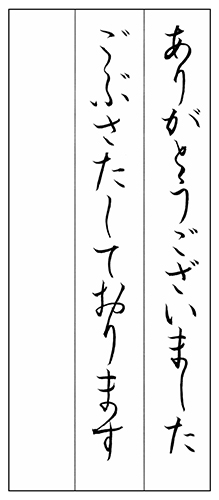 ありがとうございました
ごぶさたしております